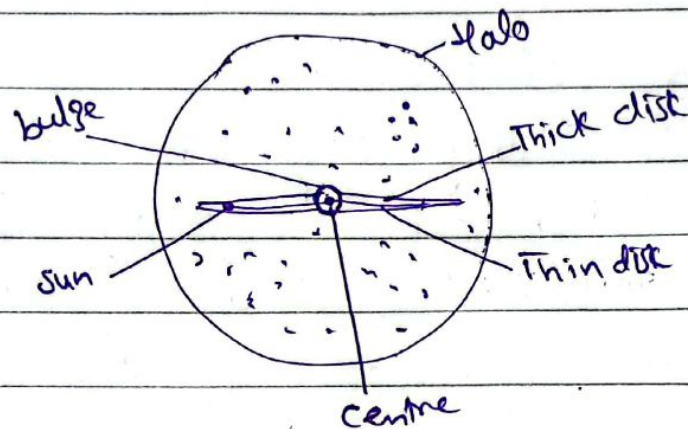 Halo
bulge
Thick disk
Sun
Thin disk
Centre